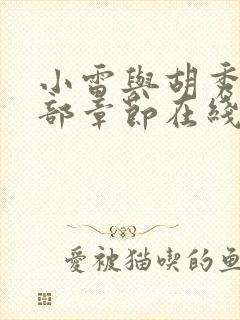 小雷與胡秀
部章節在綫
愛被猫喫的魚